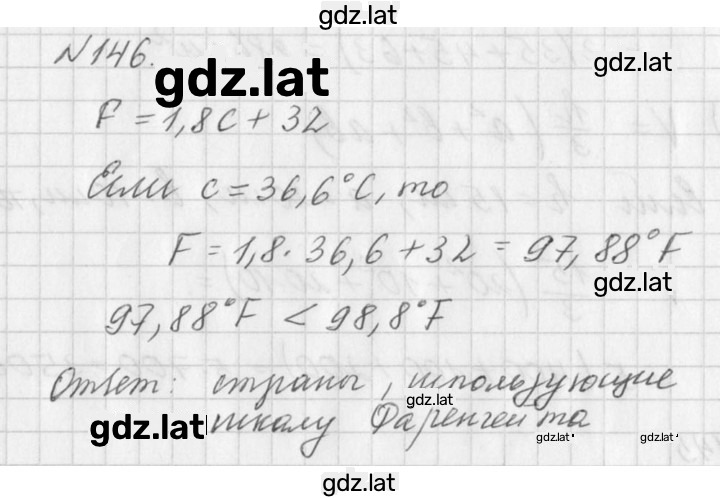 gdz.lat
N146.
gdz.lat
gdz.lat
F = 1,8C + 32
Если c = 36,6°C, то
F = 1,8 · 36,6 + 32 = 97,88°F
gdz.lat
97,88°F < 98,8°F
Ответ: страны, использующие
gdz.lat
gdz.lat шкалу Фаренгейта
gdz.lat
gdz.lat
gdz.lat